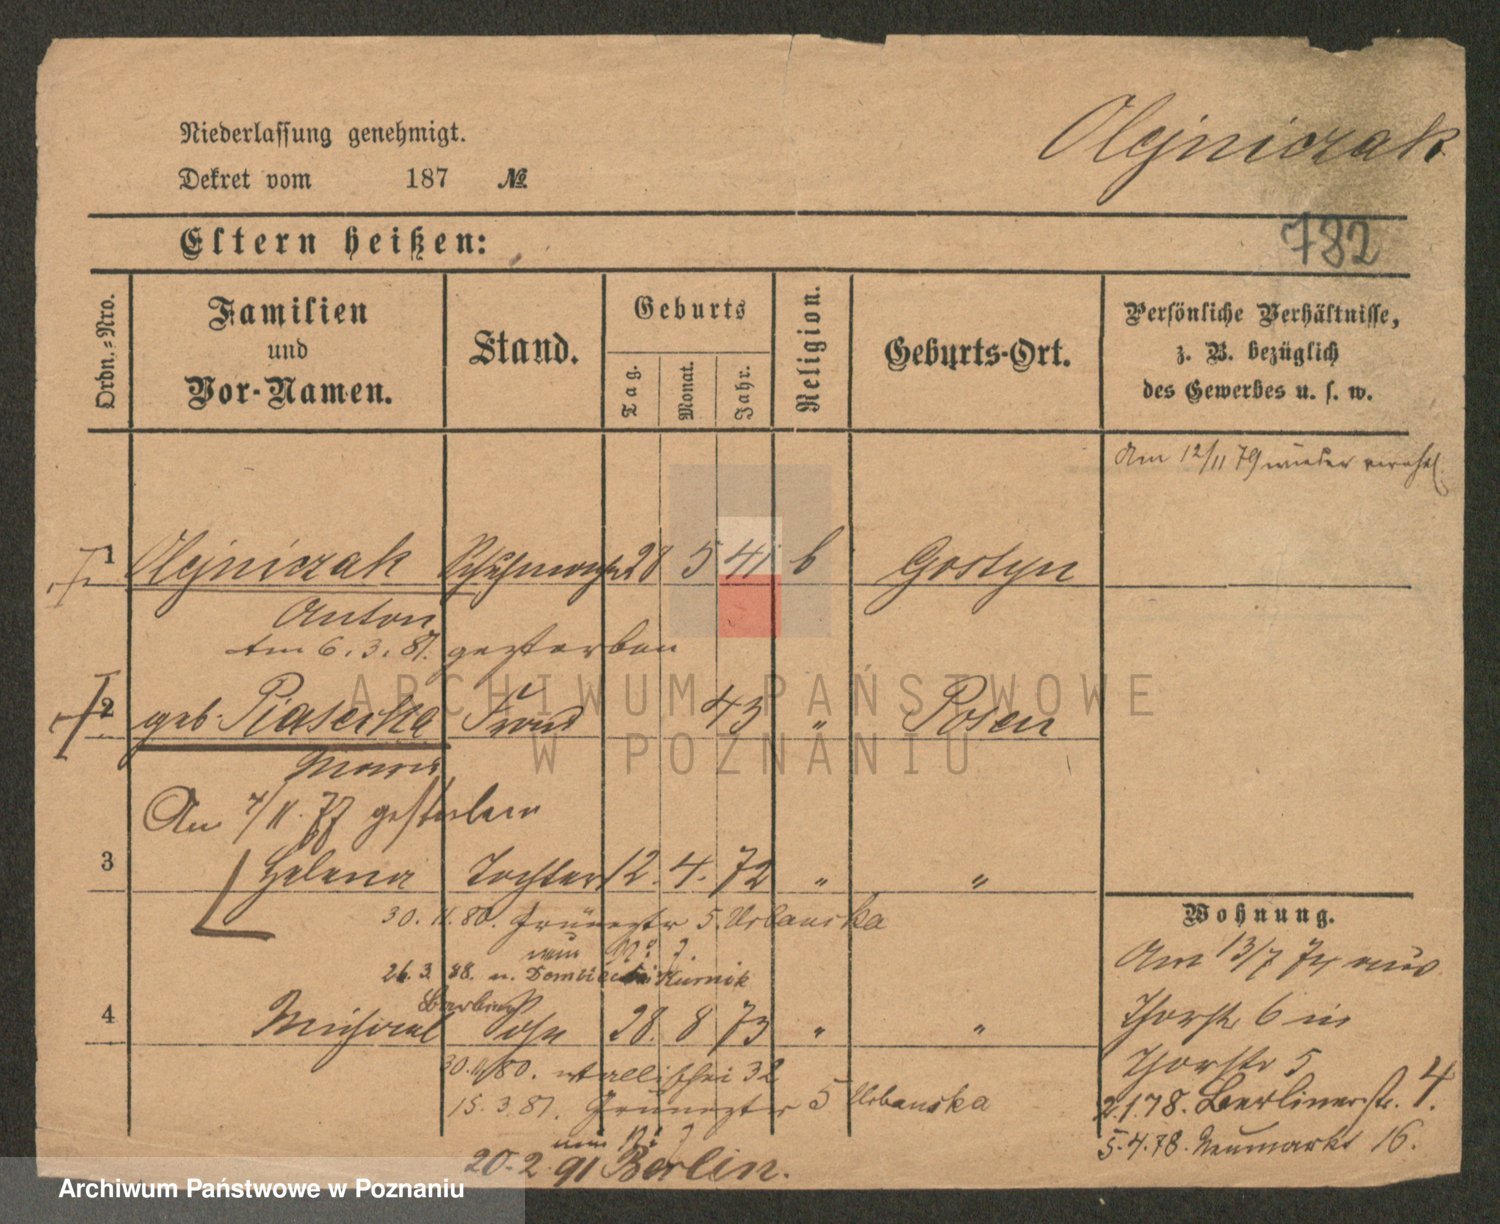 Niederlassung genehmigt.
Olejniczak
Dekret vom 187 №
Eltern heißen:
782
Ordn.-Nro.
Familien und Vor-Namen.
Stand.
Geburts
Tag. Monat. Jahr.
Religion.
Geburts-Ort.
Persönliche Verhältnisse,
z. B. bezüglich
des Gewerbes u. s. w.
Am 12/11 79 wieder
1 Olejniczak Schuhmacher 28 5 41 Gostyn
Anton
Am 6.3.81. gestorben
2 geb. Piasecka Frau 43 " Posen
Maria
Am 7/11. 77 gestorben
3 Helena Tochter 12. 4. 72 " "
30. 11. 80. Grünestr 5. Urbanska
26. 3. 88. n. Kurnik
4 Michael Sohn 28. 8 73 " "
30. /80. Wallischei 32
15. 3. 81. Grünestr 5 Urbanska
20. 2. 91 Berlin.
Wohnung.
Am 13/7 74 aus
Thorstr. 6 in
Thorstr 5
2.1.78. Berlinerstr. 4.
5.4.78. Neumarkt 16.
ARCHIWUM PAŃSTWOWE
W POZNANIU
Archiwum Państwowe w Poznaniu